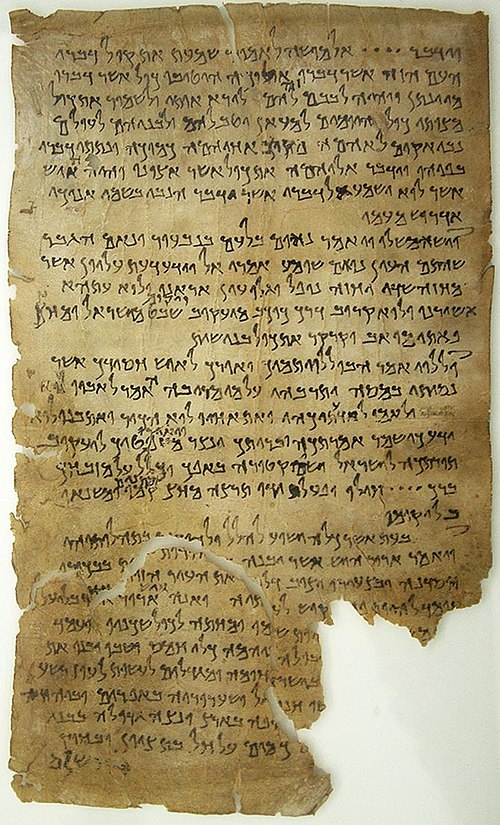 וידבר •••• אל מושה לאמור שמעת את קול דברי
העם הזה אשר דברו אליכה היטיבו כול אשר דברו
מי ינתן ויהיה לבבם זה להם לירא אותי ולשמור את כול
מצותי כול היומים למעאן יטב להם ולבניהם לעולם
נבי אקים לאהמה מקרב אחיהמה כמוכה ונתתי דברי
בפיהו וידבר אליהמה את כול אשר אצונו והיה האיש
אשר לוא ישמע אל דברי אשר ידבר הנבי בשמי אנוכי
אדרוש מעמו
וישא משלו ויאמר נאום בלעם בנבעור ונאם הגבר
שהתם העין נואם שומע אמרי אל וידע דעת עליון אשר
מחזה שדי יחזה נופל וגלו עין אראנו ולוא עתהא
אשורנו ולוא קרוב דרך כוכב מיעקוב ויקום שבט מישראל ומחץ
פאתי מואב וקרקר את כול בני שית
וללוי אמר הבו ללוי תמיך ואורך לאיש חסידך אשר
נסיתו במסה ותריבהו על מי מריבה האמר לאביו לוא
ולאמו לוא ידעתיכהו ואת אחיו לוא הכיר ואת בנו לוא
ידע כי שמר אמרתכה ובריתך ינצר ויאירו משפטיך ליעקוב
תורתכה לישראל ישים קטורה באפך וכליל על מזבחך
ברך •••• חילו ופעל ידו תרצה מחץ מתנים קמו ומשנאו
בל יקומו
בעת אשר כלה ישוע להלל ולהודות בתהלותיהו
ויאמר ארור היש אשר יבנה את העיר הזות בבכורו
ייסדנה ובצעירו יציב דלתיה ואנה ארור בליעל
עומד להיות פח יקוש לעמו ומחתה לכול שכניו ועמד
המה כלי חמס ושבו ובנו את
חומה ומגדלים לעשות לעוז רשע
בישראל ושערוריה באפרים וביהודה
פה בארץ ונצה גדולה בבני
כמים על חל בת ציון ובחוק
ירושלם